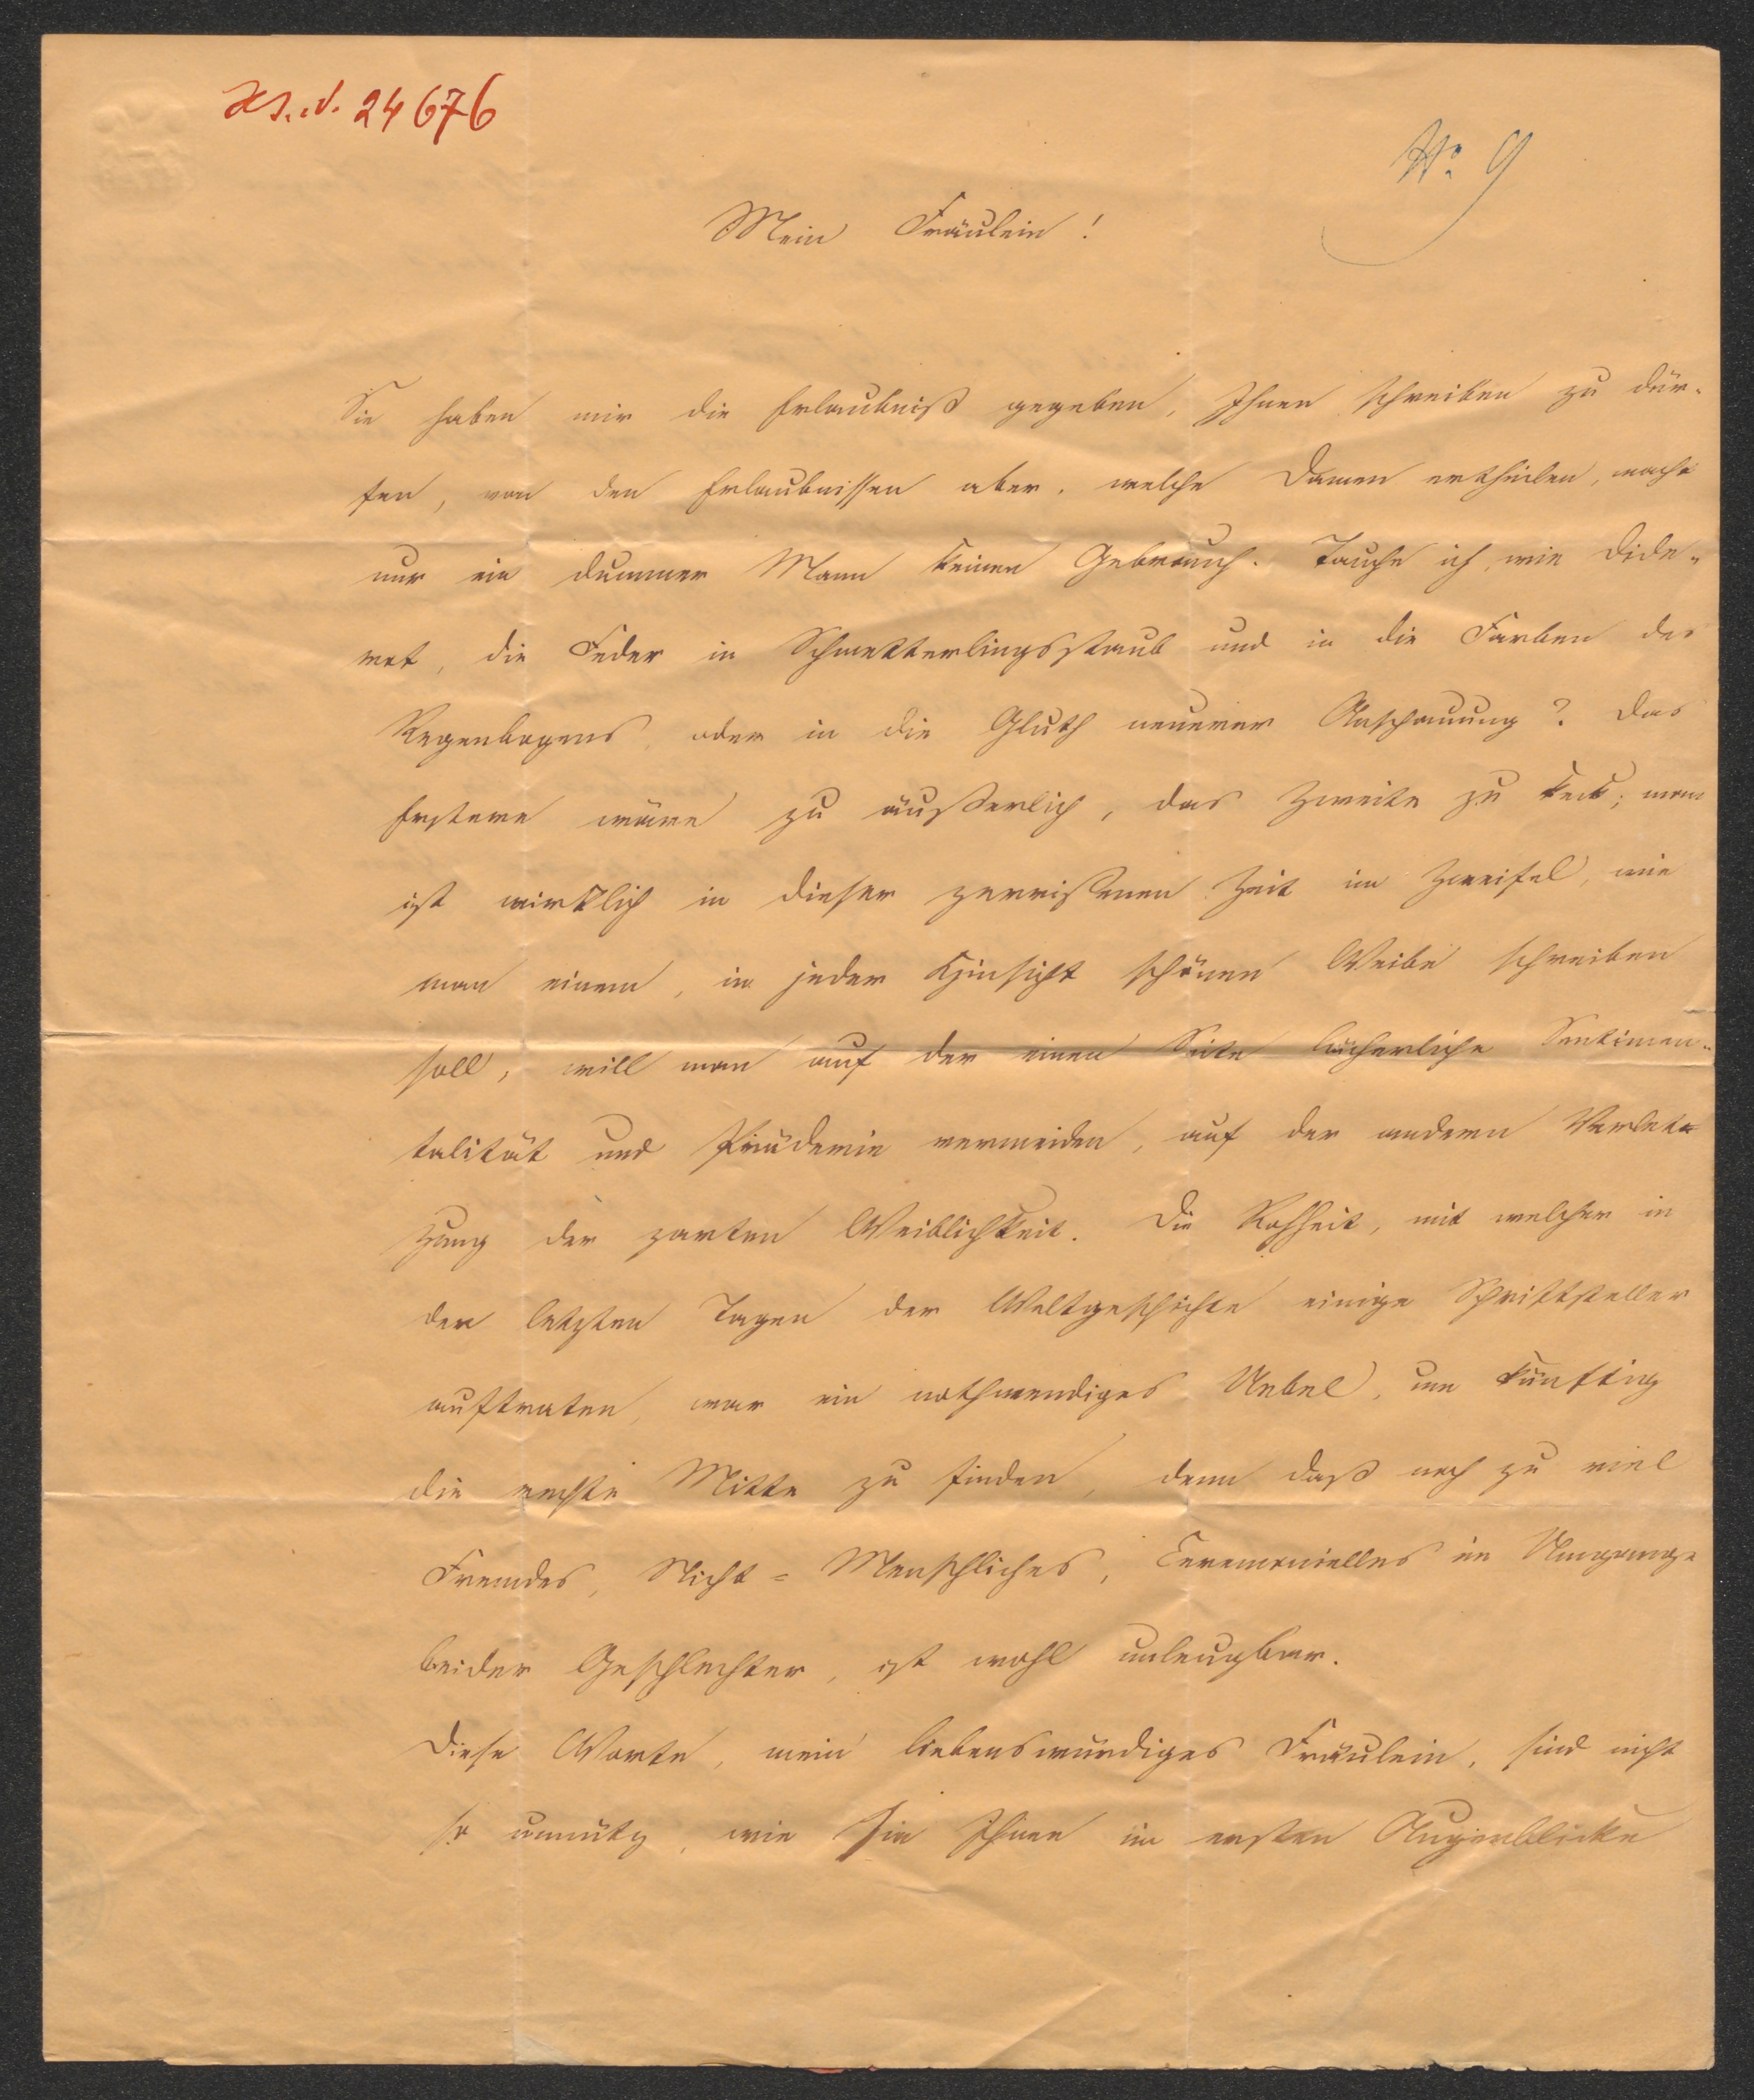 Hs. d. 24 676
No. 9
Mein Fräulein!
Sie haben mir die Erlaubniß gegeben, Ihnen schreiben zu dür-
fen, von den Erlaubnissen aber, welche Damen ertheilen, macht
nur ein dummer Mann keinen Gebrauch. Tauche ich, wie Dide-
rot, die Feder in Schmetterlingsstaub und in die Farben des
Regenbogens, oder in die Gluth neuerer Anschauung? Das
Erstere wäre zu äußerlich, das Zweite zu keck; man
ist wirklich in dieser zerrißenen Zeit im Zweifel, wie
man einem, in jeder Hinsicht schönen Weibe schreiben
soll, will man auf der einen Seite lächerliche Sentimen-
talität und Prüderie vermeiden, auf der andern Verlet-
zung der zarten Weiblichkeit. Die Rohheit, mit welcher in
den letzten Tagen der Weltgeschichte einige Schriftsteller
auftraten, war ein nothwendiges Uebel, um künftig
die rechte Mitte zu finden, denn daß noch zu viel
Fremdes, Nicht-Menschliches, Ceremonielles im Umgange
beider Geschlechter, ist wohl unleugbar.
Diese Worte, mein liebenswürdiges Fräulein, sind nicht
so unnütz, wie sie Ihnen im ersten Augenblicke